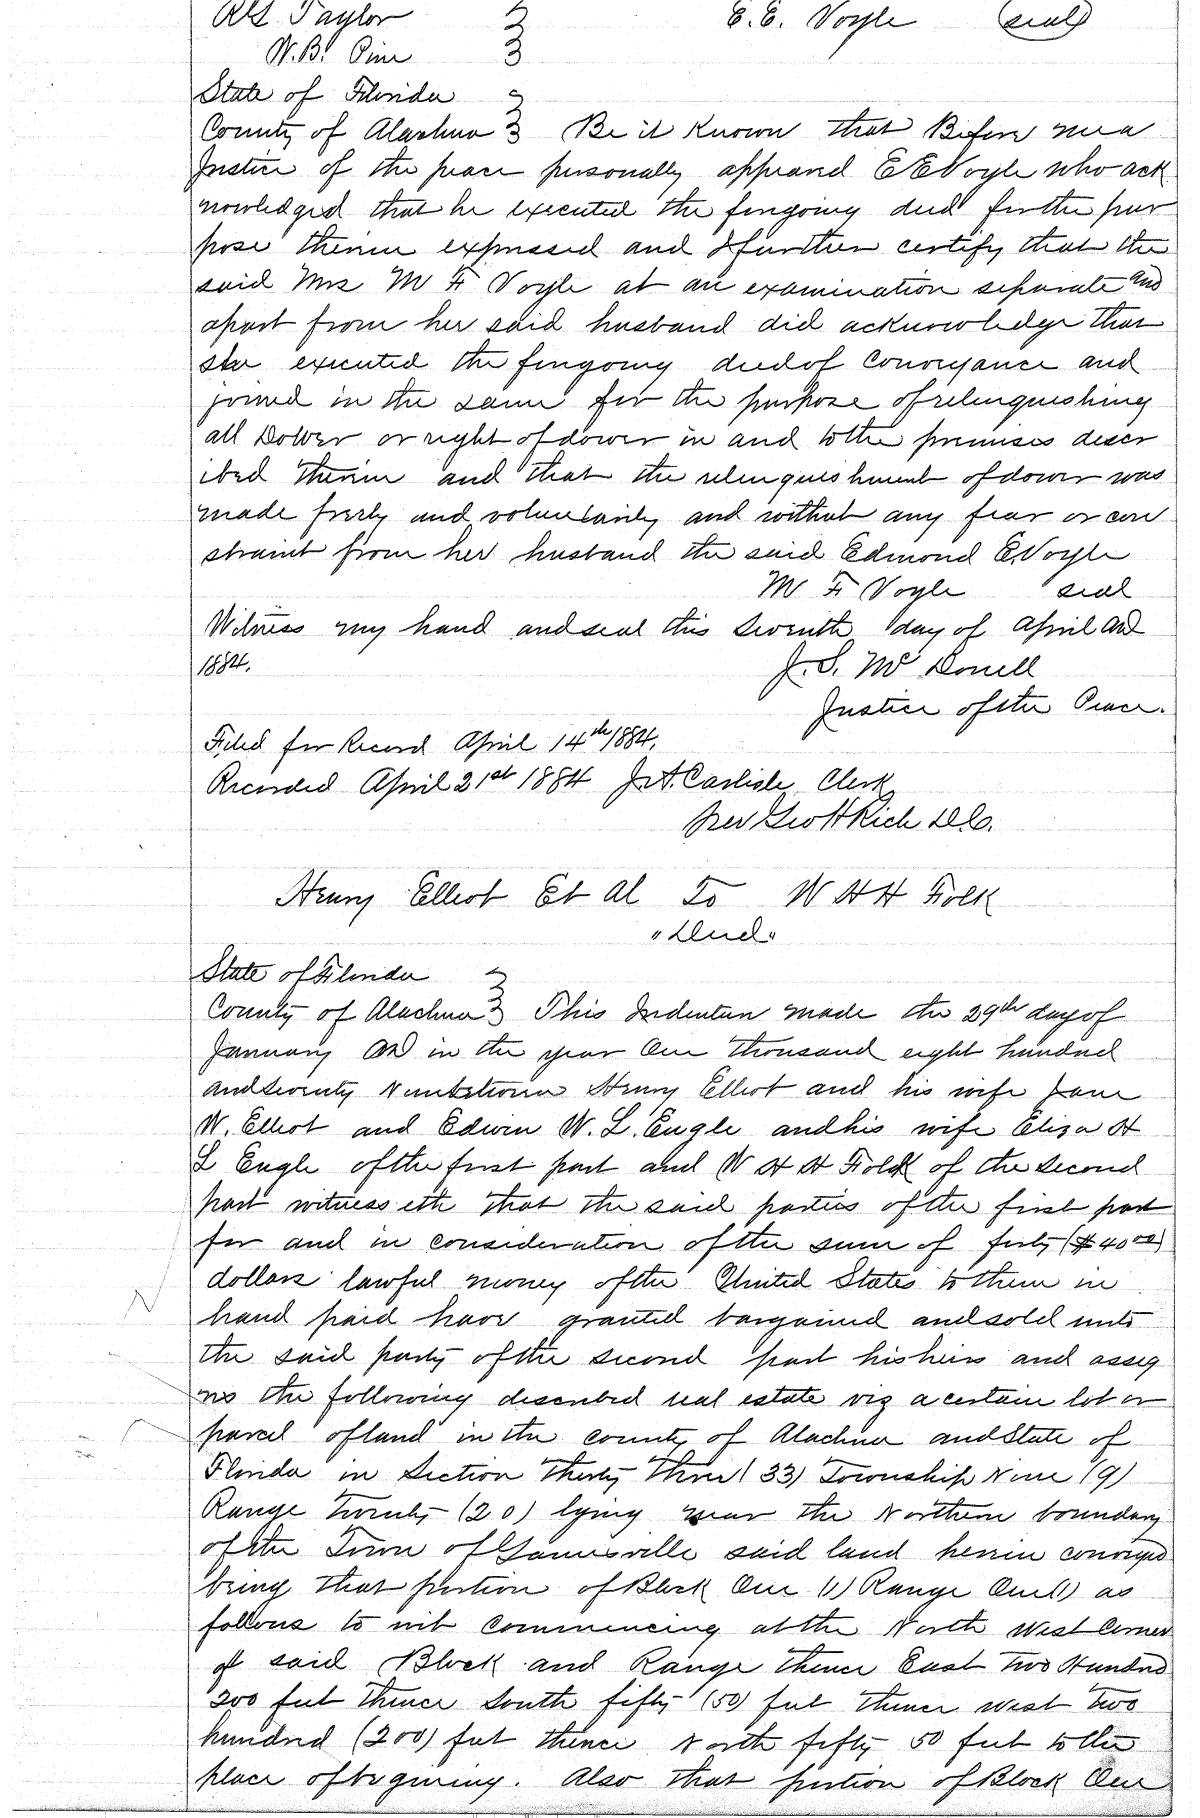 RG Taylor } E. E. Voyle (seal)
W. B. Pine }
State of Florida }
County of Alachua } Be it Known that Before me a
Justice of the peace personally appeared E E Voyle who ack
nowledged that he executed the forgoing deed for the pur
pose therein expressed and I further certify that the
said Mrs M F Voyle at an examination separate and
apart from her said husband did acknowledge that
she executed the forgoing deed of Conveyance and
joined in the same for the purpose of relinquishing
all Dower or right of dower in and to the premises descr
ibed therein and that the relinquishment of dower was
made freely and voluntarily and without any fear or con
straint from her husband the said Edmond E. Voyle
M F Voyle seal
Witness my hand and seal this seventh day of April AD
1884. J. S. McDonell
Justice of the Peace.
Filed for Record April 14th 1884.
Recorded April 21st 1884 J. A. Carlisle Clerk
per Geo H Rich D.C.
Henry Elliot Et Al To W H H Folk
"Deed"
State of Florida }
County of Alachua } This Indenture made the 29th day of
January AD in the year One thousand eight hundred
and seventy Nine between Henry Elliot and his wife Jane
W. Elliot and Edwin W. L. Engle and his wife Eliza H
L Engle of the first part and W H H Folk of the second
part witness eth that the said parties of the first part
for and in consideration of the sum of forty ($40.00)
dollars lawful money of the United States to them in
hand paid have granted bargained and sold unto
the said party of the second part his heirs and assig
ns the following described real estate viz a certain lot or
parcel of land in the county of Alachua and State of
Florida in Section Thirty Three (33) Township Nine (9)
Range twenty (20) lying near the Northern boundary
of the Town of Gainesville said land herein conveyed
being that portion of Block One (1) Range One (1) as
follows to wit Commencing at the North West Corner
of said Block and Range thence East Two Hundred
200 feet thence South fifty (50) feet thence west two
hundred (200) feet thence North fifty 50 feet to the
place of begining. Also that portion of Block One